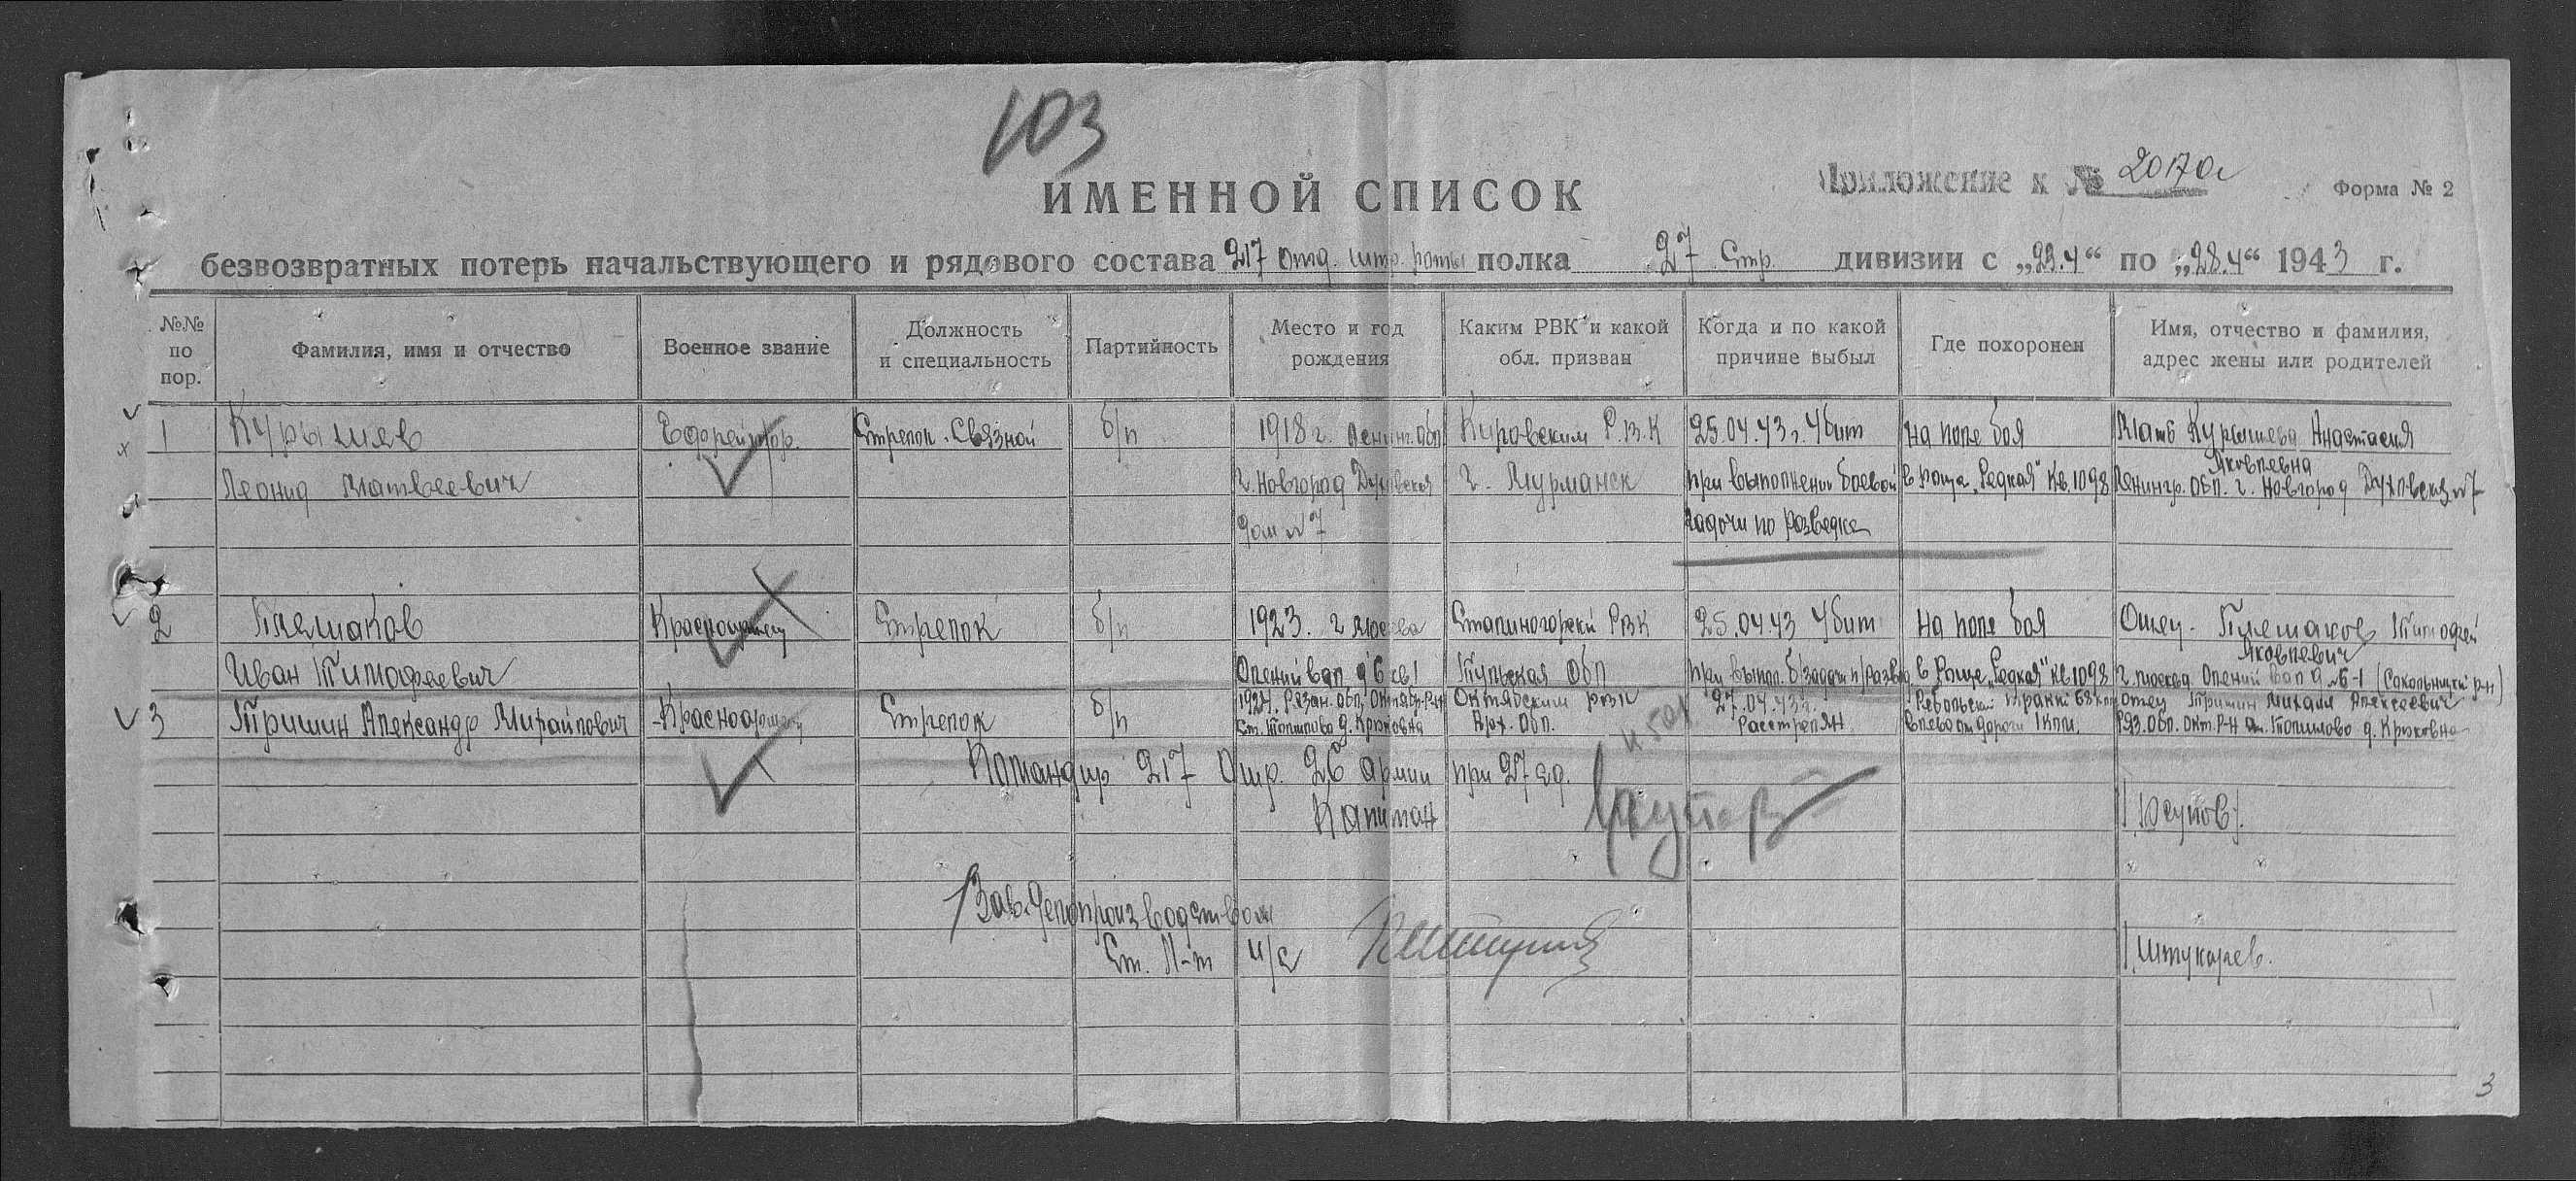 103
Приложение к № 2017а
Форма № 2
ИМЕННОЙ СПИСОК
безвозвратных потерь начальствующего и рядового состава 217 отд. штр. роты полка 27 Стр. дивизии с „23.4“ по „28.4“ 1943 г.
№№ по пор.
Фамилия, имя и отчество
Военное звание
Должность и специальность
Партийность
Место и год рождения
Каким РВК и какой обл. призван
Когда и по какой причине выбыл
Где похоронен
Имя, отчество и фамилия, адрес жены или родителей
1 Курышев Ефрейтор. Стрелок. Связной б/п 1918 г. Ленинг. обл Кировским Р.В.К 25.04.43 г. Убит на поле боя Мать Курышева Анастасия
Яковлевна
Леонид Матвеевич г. Новгород Духовская г. Мурманск при выполнении боевой в роще „Редкая" кв. 1098 Ленингр. обл. г. Новгород Духовская 7
дом № 7 задачи по разведке
2 Красноармеец Стрелок б/п 1923. г Москва Сталиногорски РВК 25.04.43 Убит на поле боя Отец - Тимофей
Яковлевич
Иван Тимофеевич Олений вал д 6 кв 1 Тульская обл при выпол. б/задач п/развед в Роще „Редкая" кв 1098 г. Москва Олений вал д. № 6-1 (Сокольницкий р-н)
3 Тришин Александр Михайлович Красноармеец Стрелок б/п 1924. Рязан. обл. Октябр. Р-н Октябрским РВК 27.04.43 г. Ребольский тракт 63 км отец Тришин Михаил Алексеевич
Ст. Топилово д. Крюковка Арх. обл. Расстрелян влево от дороги 1 клм. Ряз. обл. Окт. Р-н ст. Топилово д. Крюковка
Командир 217 Ошр. 26 армии при 27 сд.
Капитан /Юсупов/.
Зав. Делопроизводством
Ст. Л-т и/с /Штукарев.
3